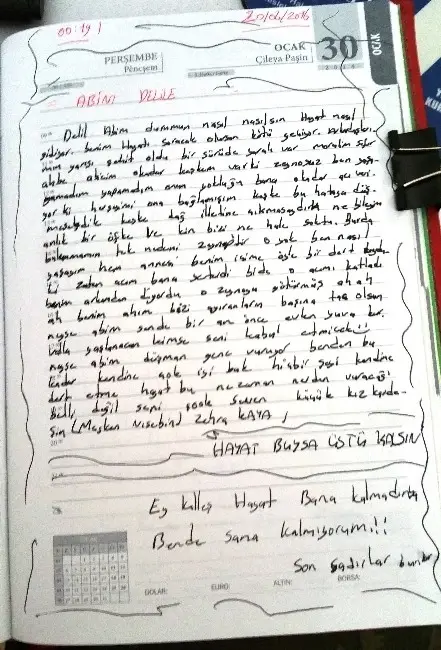 00:19
20/04/2016
PERŞEMBE
Pêncşem
OCAK
Çileya Paşîn
30
OCAK
2014
ABİM DELİLE
Delil Abim durumun nasıl nasılsın Hayat nasıl
gidiyor. benim Hayatı soracak olursan kötü geçiyor. Arkadaşlar
yarısı şehit oldu bir sürüde yaralı var moralim sıfır
abicim okadar keşkem varki zeynosuz ben yaş
yamadım yapamadım onun yokluğu bana okadar acı veri
yor ki herşeyimi ona bağlamışım keşke bu hataya düş
meseydik keşke dağ illetine çıkmasaydık ne bileyim
anlık bir öfke ve kin bizi ne hale soktu. Burda
tek nedeni zeynodir o yok ben nasıl
yaşayım hem annesi benim içime öyle bir dert
ki zaten acım bana yeterdi bide o acımı katladı
benim arkamdan diyordu o zeynoyu götürmüş ah ah
ah benim ahım bizi ayıranların başına taş olsun
neyse abim sende bir an önce evlen yuva kur.
Valla yaşlanacan kimse seni kabul etmicek!!
neyse abim düşman gene vuruyor benden bu
kadar kendine çok iyi bak hiçbir şeyi kendine
dert etme hayat bu ne zaman nerden vuracağı
belli değil seni çook seven küçük kız karde-
şin (Meşken Nısebin) Zehra KAYA
HAYAT BUYSA ÜSTÜ KALSIN
Ey kalleş Hayat Bana kalmadınya
Bende sana kalmıyorum!!
Son satırlar bunlar
DOLAR:
EURO:
ALTIN:
BORSA: